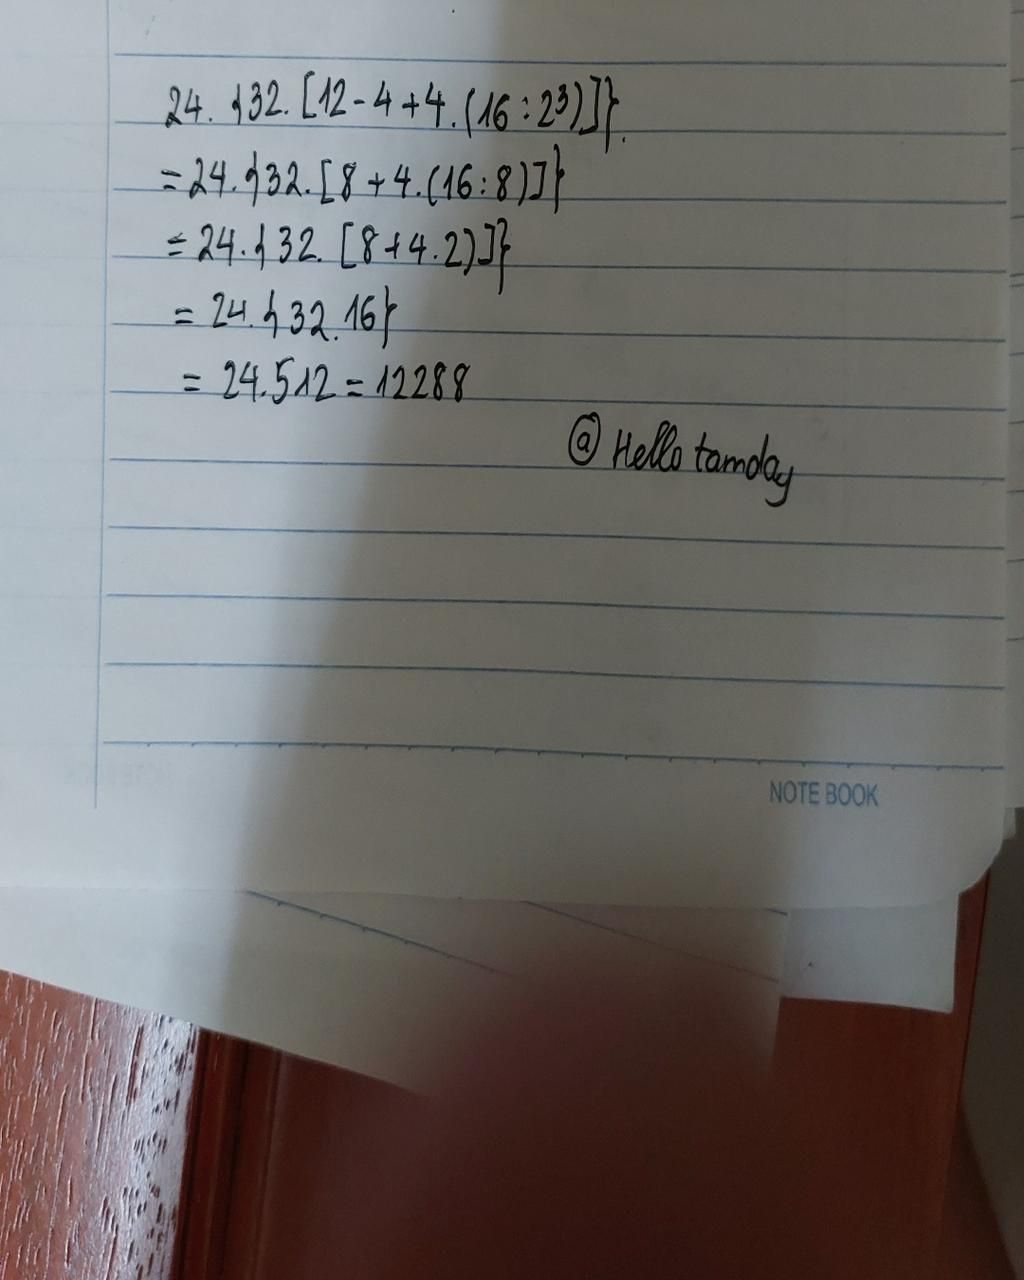 24.{32.[12-4+4.(16:2³)]}.
=24.{32.[8+4.(16:8)]}
=24.{32.[8+4.2)]}
=24.{32.16}
=24.512=12288
@ Hello tamday
NOTE BOOK